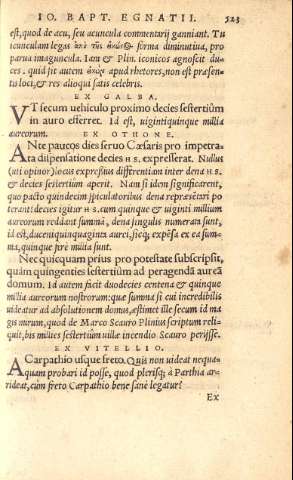 IO. BAPT. EGNATII. 523
est, quod de acu, seu acuncula commentarij ganniant. Tu
icunculam legas ἀπὸ τῆς forma diminutiua, pro
parua imaguncula. Iam & Plin. iconicos agnoscit du-
ces. quid sit autem apud rhetores, non est præsen-
tis loci, & res alioqui satis celebris.
EX GALBA.
VT secum uehiculo proximo decies sestertiũm
in auro efferret. Id est, uigintiquinque millia
aureorum.
EX OTHONE.
ANte paucos dies seruo Cæsaris pro impetra-
ta dispensatione decies HS. expresserat. Nullus
(uti opinor) locus expressius differentiam inter dena HS.
& decies sestertium aperit. Nam si idem significarent,
quo pacto quindecim speculatoribus dena repræsentari po
terant: decies igitur HS. cum quinque & uiginti millium
aureorum reddant summã, dena singulis numeran sunt,
id est, ducenti quinquaginta aurei, sicq; expẽsa ex ea sum-
ma, quinque ferè millia sunt.
Nec quicquam prius pro potestate subscripsit,
quàm quingenties sestertium ad peragendã aureã
domum. Id autem facit duodecies centena & quinque
millia aureorum nostrorum: quæ summa si cui incredibilis
uideatur ad absolutionem domus, æstimet ille secum id ma
gis mirum, quod de Marco Scauro Plinius scriptum reli-
quit, bis millies sestertiũm uillæ incendio Scauro perijsse.
EX VITELLIO.
A Carpathio usque freto. Quis non uideat nequa-
quam probari id posse, quod plerisq; à Parthia ar-
rideat, cùm freto Carpathio bene sanè legatur?
Ex